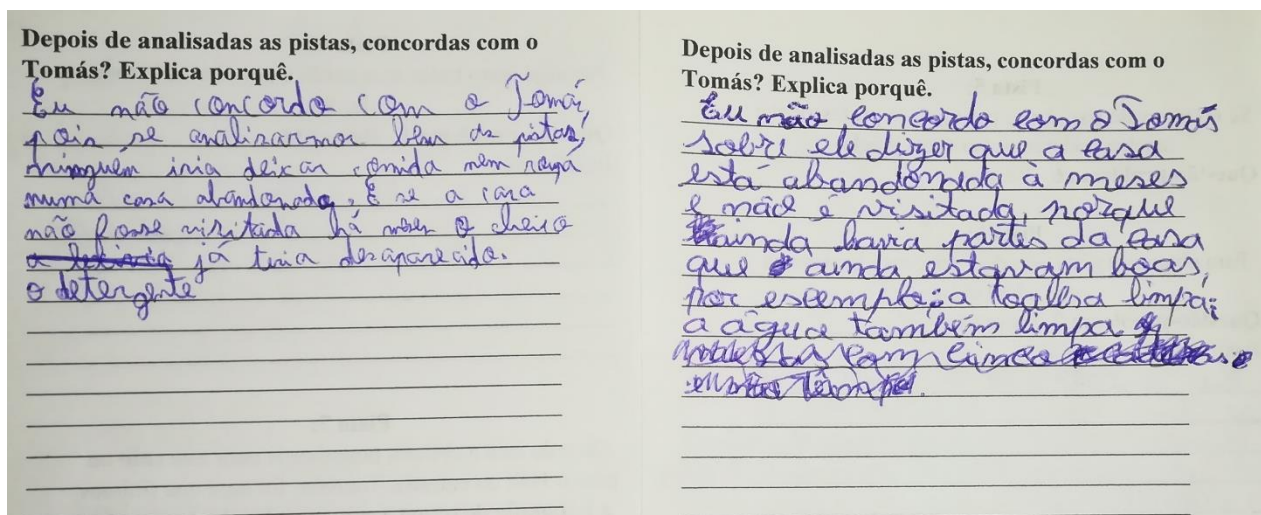 Depois de analisadas as pistas, concordas com o
Tomás? Explica porquê.
Eu não concordo com o Tomás,
pois se analisarmos bem as pistas,
ninguém iria deixar comida nem roupa
numa casa abandonada, E se a casa
não fosse visitada há meses o cheiro
já teria desaparecido.
o detergente
Depois de analisadas as pistas, concordas com o
Tomás? Explica porquê.
Eu não concordo com o Tomás
sobre ele dizer que a casa
está abandonada à meses
e não é visitada, porque
ainda havia partes da casa
que ainda estavam boas,
por escemplo: a toalha limpa;
a água também limpa